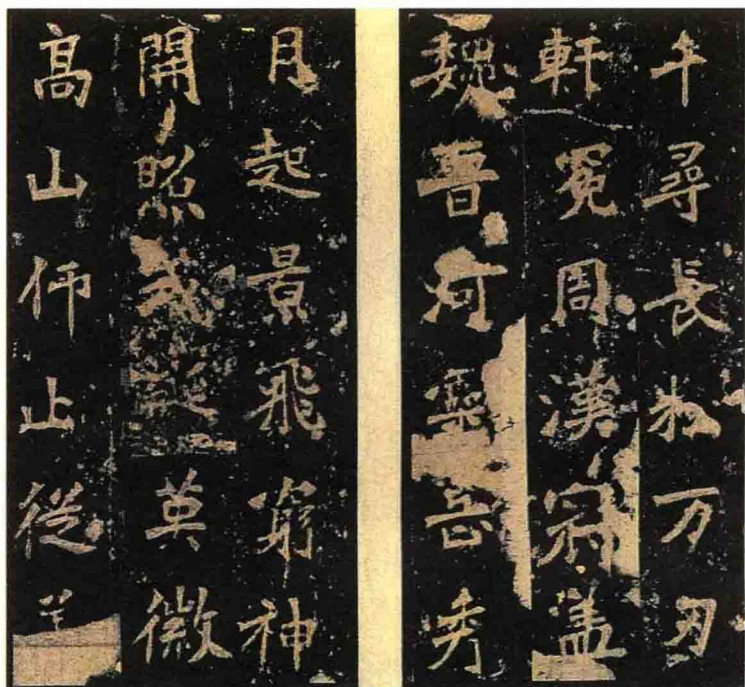 千尋長松万刃
軒冕周漢冠盖
魏晉河靈岳秀
月起景飛窮神
開照式英徽
高山仰止從